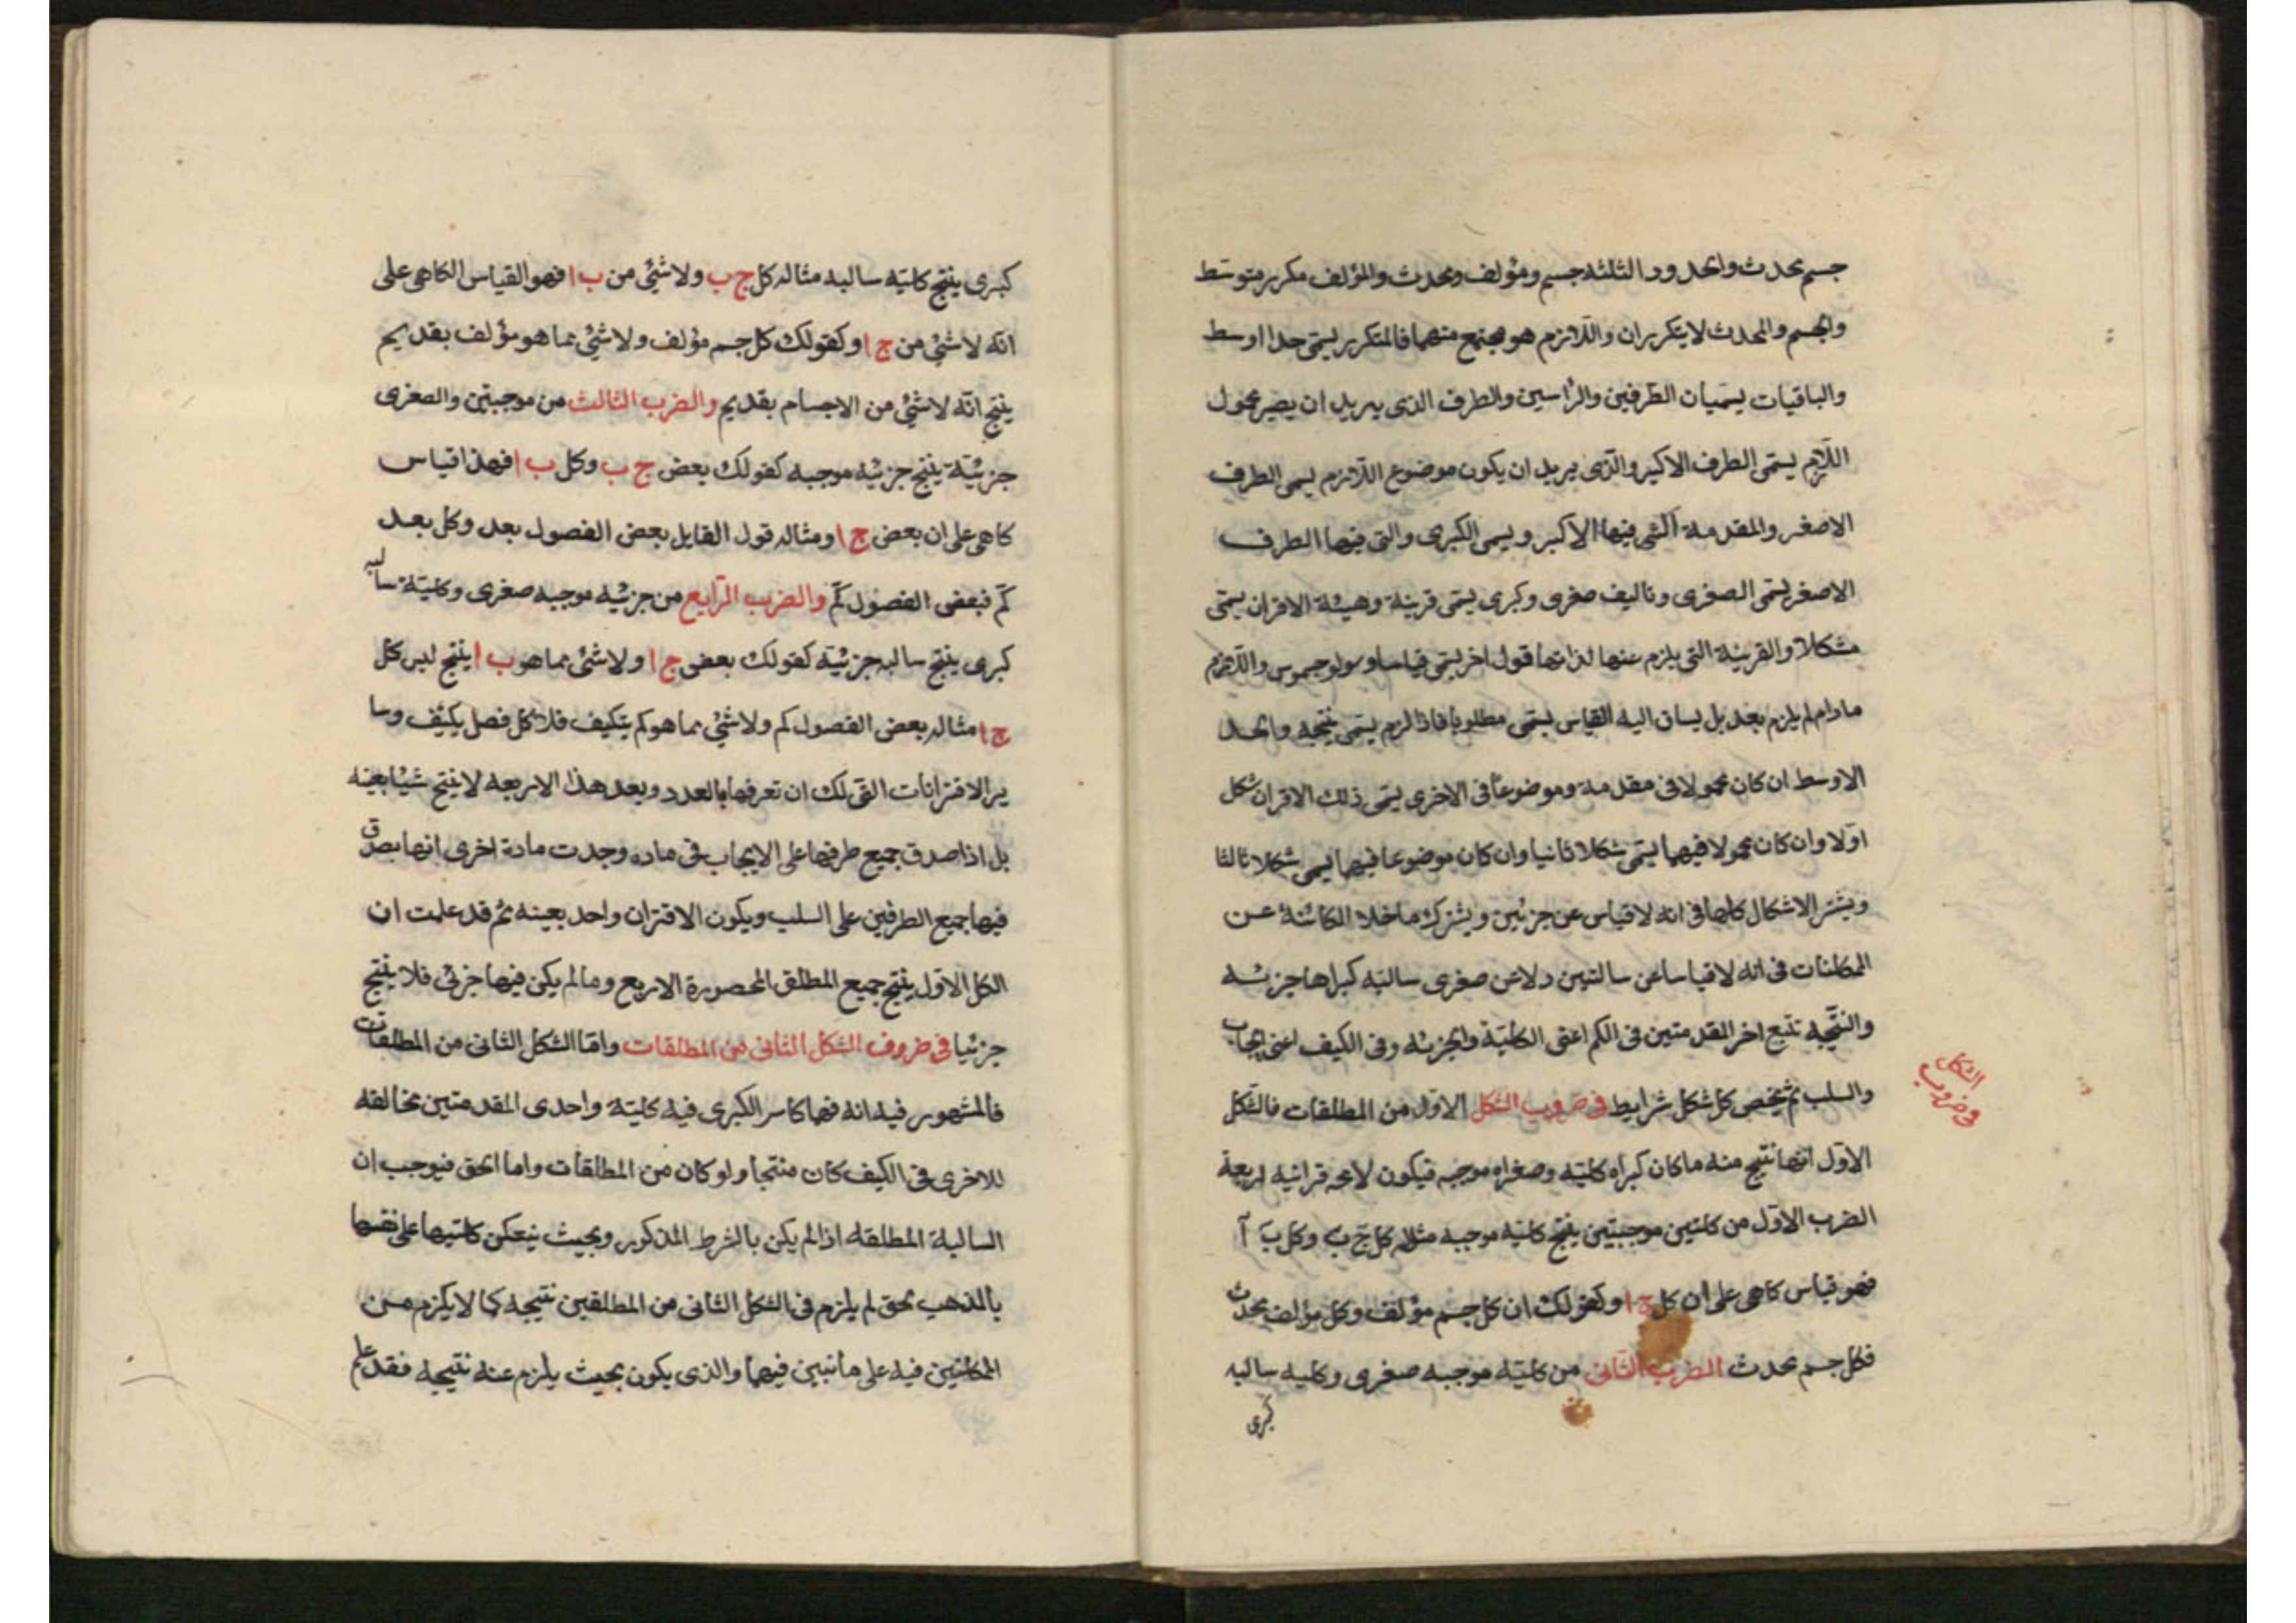 جسم محدث والحدود الثلثه جسم ومؤلف ومحدث والمؤلف مكرر متوسط
والجسم والمحدث لا يتكرران واللازم هو مجتمع منهما فالمتكرر يسمى حدا اوسط
والباقيات يسميان الطرفين والراسين والطرف الذى يريد ان يصير محمول
اللازم يسمى الطرف الاكبر والذى يريد ان يكون موضوع اللازم يسمى الطرف
الاصغر والمقدمة التى فيها الاكبر ويسمى الكبرى والتى فيها الطرف
الاصغر يسمى الصغرى وتاليف صغرى وكبرى يسمى قرينة وهيئة الاقران يسمى
شكلا والقرينة التى يلزم عنها لذاتها قول اخر يسمى قياسا وسولوجسموس واللازم
مادام لم يلزم بعد بل يساق اليه القياس يسمى مطلوبا فاذا لزم يسمى نتيجه والحد
الاوسط ان كان محمولا فى مقدمة وموضوعا فى الاخرى يسمى ذلك الاقران شكل
اولا وان كان محمولا فيهما يسمى شكلا ثانيا وان كان موضوعا فيهما يسمى شكلا ثالثا
ويشتر الاشكال كلها فى انه لا قياس عن جزئين ويشترك ماخلا الكائنة عن
الممكنات فى انه لا قياسا عن سالتين ولا عن صغرى سالبه كبراها جزئيه
والنتيجه تتبع اخر المقدمتين فى الكم اعنى الكلية والجزئه وفى الكيف اعنى ايجاب
والسلب ثم يخص كل شكل شرايط فى ضروب الشكل الاول من المطلقات فالشكل
الشكل
فى ضروب
الاول انها نتيج منه ما كان كبراه كلية وصغراه موجبه فيكون لامحه قرانيه اربعة
الضرب الاول من كلتين موجبتين ينتج كلية موجبه مثاله كل ج ب وكل ب ا
فهو قياس كاهى على ان كل ج ا وكقولك ان كل جسم مؤلف وكل مؤلف محدث
فكل جسم محدث الضرب الثانى من كلية موجبه صغرى وكليه سالبه
كبرى
كبرى ينتج كلية سالبه مثاله كل ج ب ولا شئ من ب ا فهو القياس الكاهى على
انه لا شئ من ج ا وكقولك كل جسم مؤلف ولا شئ مما هو مؤلف بقديم
ينتج انه لا شئ من الاجسام بقديم والضرب الثالث من موجبتين والصغرى
جزئية ينتج جزئيه موجبه كقولك بعض ج ب وكل ب ا فهذا قياس
كاهى على ان بعض ج ا ومثاله قول القايل بعض الفصول بعد وكل بعد
كم فبعض الفصول كم والضرب الرابع من جزئيه موجبه صغرى وكلية سالبه
كبرى ينتج سالبه جزئية كقولك بعض ج ا ولا شئ مما هو ب ا ينتج ليس كل
ج ا مثاله بعض الفصول كم ولا شئ مما هو كم يتكيف فلا كل فصل يكيف وسا
ير الاقترانات التى لك ان تعرفها بالعدد وبعد هذا الاربعه لا ينتج شيئا بعينه
بل اذا صدق جميع طرفها على الايجاب فى ماده وجدت مادة اخرى انها بصدق
فيها جميع الطرفين على السلب ويكون الاقتران واحد بعينه ثم قد علمت ان
الكل الاول ينتج جميع المطلق المحصورة الاربع وما لم يكن فيها جزئى فلا ينتج
جزئيا فى ضروف الشكل الثانى من المطلقات واما الشكل الثانى من المطلقات
فالمشهور فيه انه فهما كاسر الكبرى فيه كلية واحدى المقدمتين مخالفه
للاخرى فى الكيف كان منتجا ولو كان من المطلقات واما الحق فيوجب ان
السالبة المطلقه اذا لم يكن بالشرط المذكور وبحيث ينعكس كلتيها على نفسها
بالمذهب الحق لم يلزم فى الشكل الثانى من المطلقين نتيجه كما لا يلزم من
الممكنين فيه على ما نبين فيهما والذى يكون بحيث يلزم عنه نتيجه فقد علم